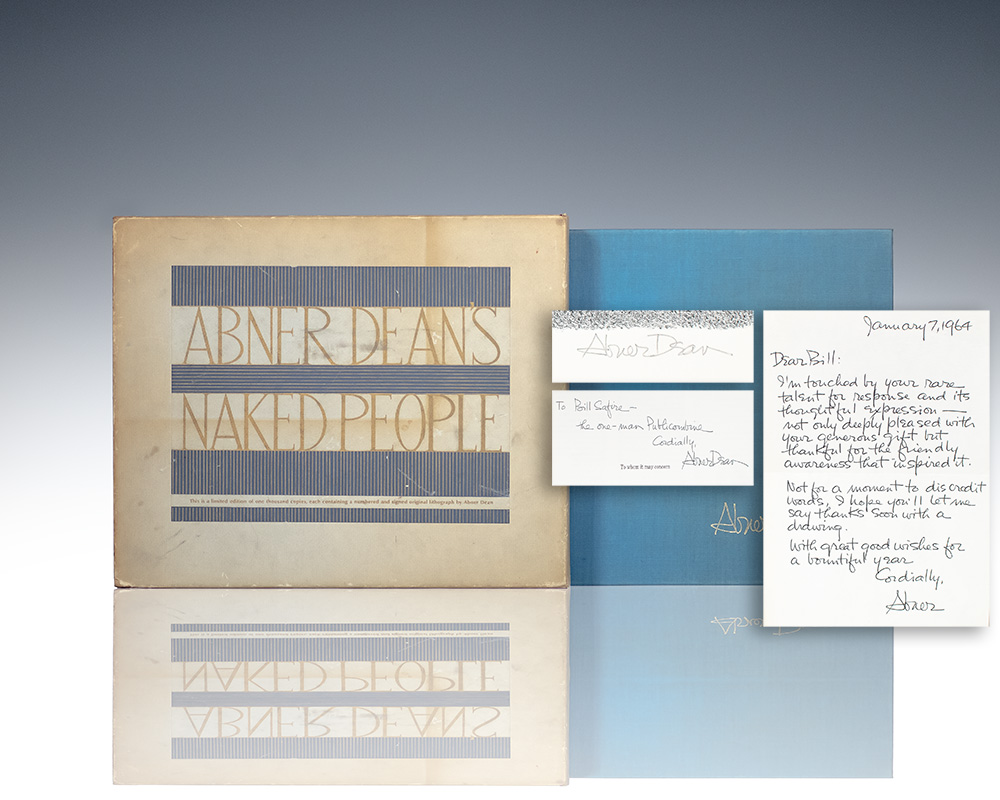 ABNER DEAN'S
NAKED PEOPLE
This is a limited edition of one thousand copies, each containing a numbered and signed original lithograph by Abner Dean
Abner Dean
To Bill Safire —
the one-man Publicombine
Cordially,
Abner Dean
To whom it may concern
Abne
January 7, 1964
Dear Bill:
I'm touched by your rare
talent for response and its
thoughtful expression —
not only deeply pleased with
your generous gift but
thankful for the friendly
awareness that inspired it.
Not for a moment to discredit
words, I hope you'll let me
say thanks soon with a
drawing.
With great good wishes for
a bountiful year
Cordially,
Abner